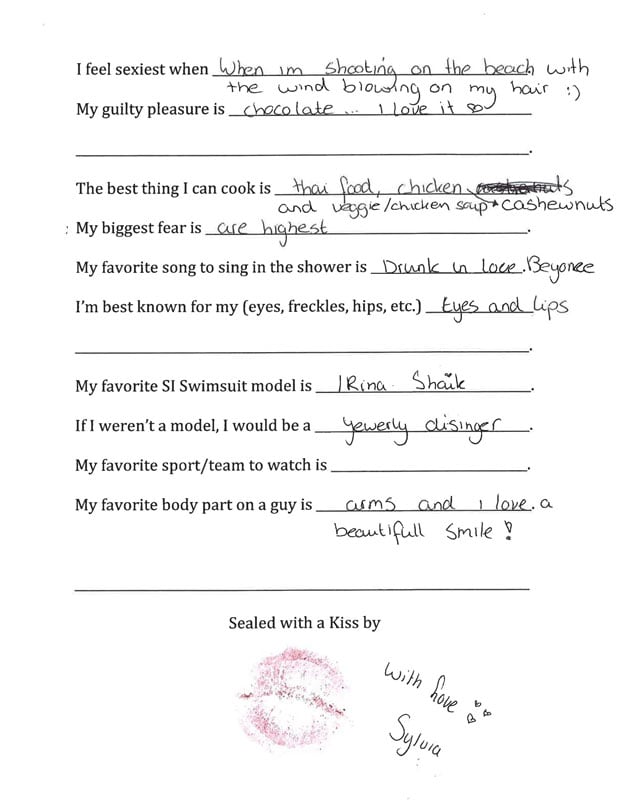 I feel sexiest when When im shooting on the beach with
the wind blowing on my hair :)
My guilty pleasure is chocolate ... I love it
.
The best thing I can cook is thai food, chicken
and veggie/chicken soup * cashewnuts
: My biggest fear is are highest.
My favorite song to sing in the shower is Drunk in love. Beyonce
I'm best known for my (eyes, freckles, hips, etc.) Eyes and Lips
.
My favorite SI Swimsuit model is IRina Shaik.
If I weren't a model, I would be a yewerly disinger.
My favorite sport/team to watch is.
My favorite body part on a guy is arms and i love. a
beautifull smile!
Sealed with a Kiss by
With love
Sylvia